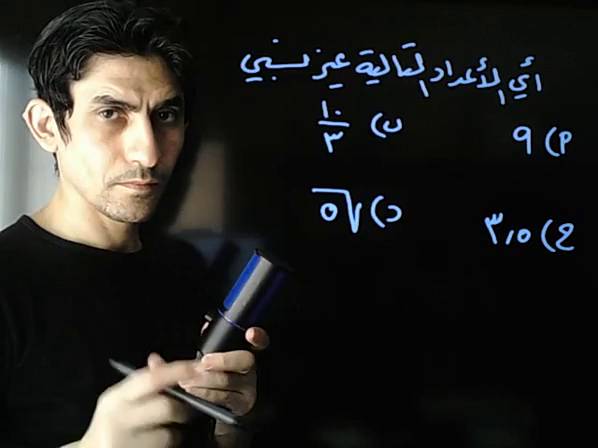 أي الأعداد التالية غير نسبي
أ) ٩ ب) ١٠/٣
ج) ٣٫٥ د) √٥